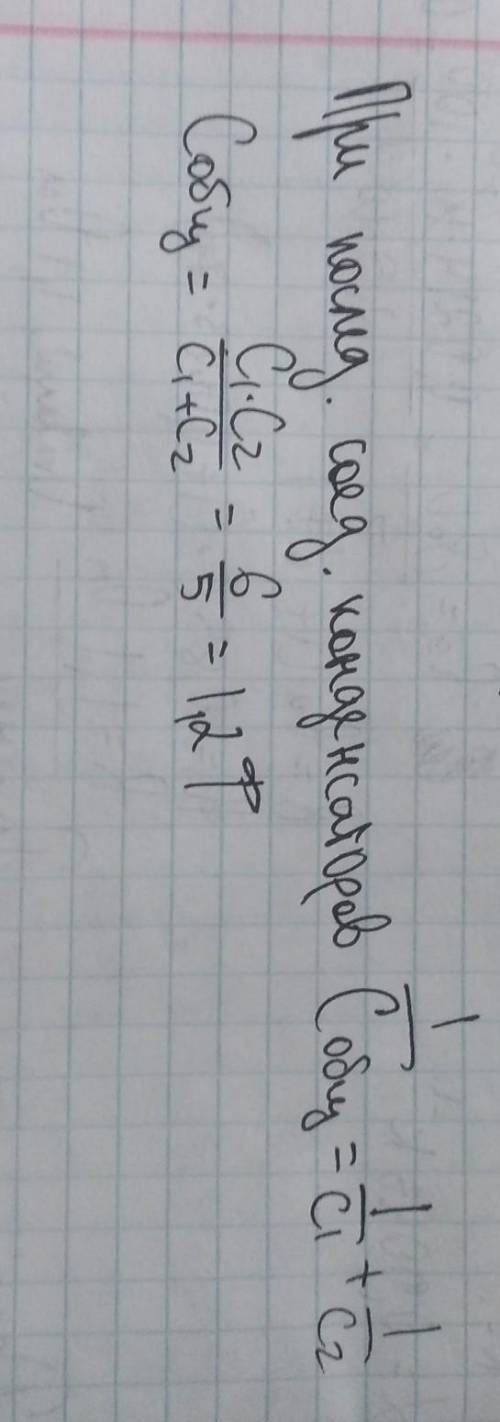 При послед. соед. конденсаторов 1/Cобщ = 1/C₁ + 1/C₂
Cобщ = C₁·C₂/C₁+C₂ = 6/5 = 1,2 Ф